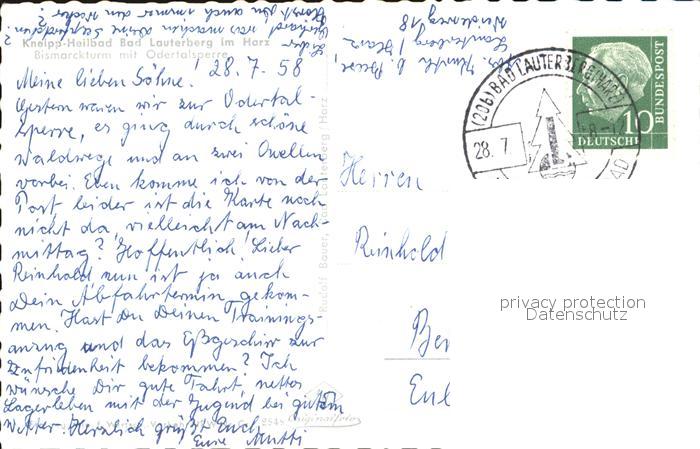 Kneipp-Heilbad Bad Lauterberg im Harz
Bismarckturm mit Odertalsperre
28.7.58
Meine lieben Söhne.
Gestern waren wir zur Odertal-
sperre, es ging durch schöne
Waldwege und an zwei Quellen
vorbei. Eben komme ich von der
Post leider ist die Karte noch
nicht da, vielleicht am Nach-
mittag? Hoffentlich! Lieber
Reinhold nun ist ja auch
Dein Abfahrtermin gekom-
men. Hast Du Deinen Trainings-
anzug und das Eßgeschirr zur
Zufriedenheit bekommen? Ich
wünsche Dir gute Fahrt, nettes
Lagerleben mit der Jugend bei gutem
Wetter. Herzlich grüßt Euch
Eure Mutti
Lieber
Gerhard was machen Deine
Hörst Du auch immer den Wecker?
Lauterberg / Harz
18
(20b) BAD LAUTERBERG (HARZ)
28. 7
BUNDESPOST
10
DEUTSCHE
Herren
Reinhold
Ber
Rudolf Bauer, Bad Lauterberg / Harz
Originalfoto
privacy protection
Datenschutz